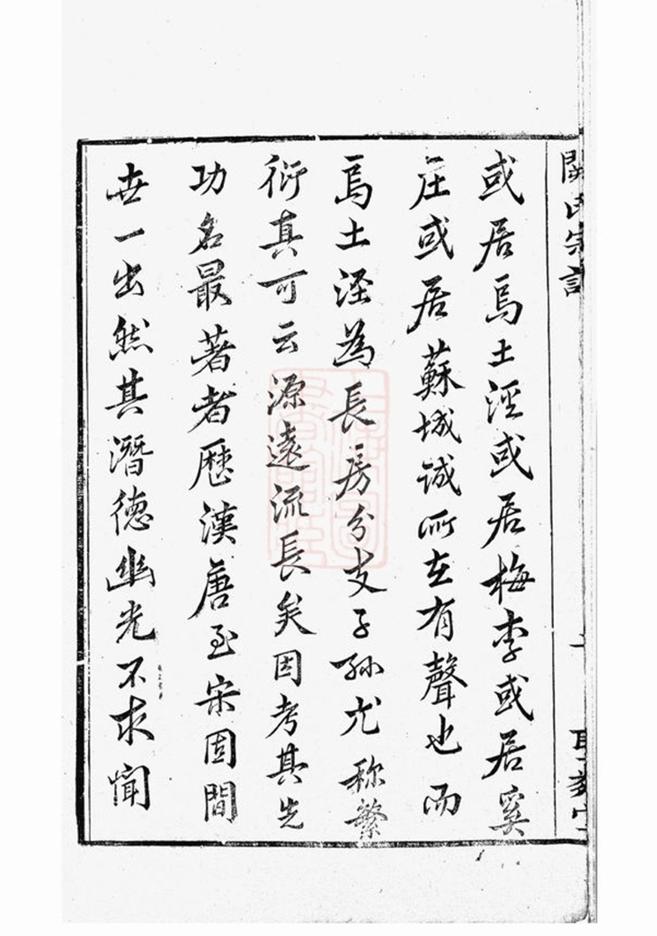 或居烏土涇或居梅李或居奚
庄或居蘇城诚所在有聲也而
烏土涇為長房分支子孫尤称繁
衍真可云源遠流長矣因考其先
功名最著者歷漢唐至宋固間
世一出然其潛德幽光不求聞